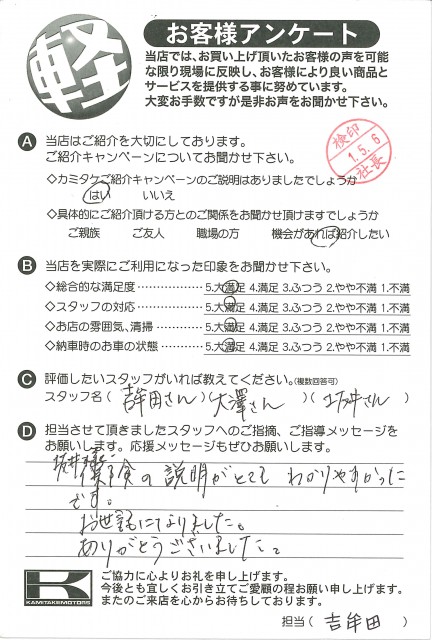 軽
お客様アンケート
当店では、お買い上げ頂いたお客様の声を可能
な限り現場に反映し、お客様により良い商品と
サービスを提供する事に努めています。
大変お手数ですが是非お声をお聞かせ下さい。
検印
1.5.6
社長
A 当店はご紹介を大切にしております。
ご紹介キャンペーンについてお聞かせ下さい。
◇カミタケご紹介キャンペーンのご説明はありましたでしょうか
はい いいえ
◇具体的にご紹介頂ける方とのご関係をお聞かせ頂けますでしょうか
ご親族 ご友人 職場の方 機会があれば紹介したい
B 当店を実際にご利用になった印象をお聞かせ下さい。
◇総合的な満足度 5.大満足 4.満足 3.ふつう 2.やや不満 1.不満
◇スタッフの対応 5.大満足 4.満足 3.ふつう 2.やや不満 1.不満
◇お店の雰囲気、清掃 5.大満足 4.満足 3.ふつう 2.やや不満 1.不満
◇納車時のお車の状態 5.大満足 4.満足 3.ふつう 2.やや不満 1.不満
C 評価したいスタッフがいれば教えてください。(複数回答可)
スタッフ名 ( 吉牟田さん )( 大澤さん )( 坂井さん )
D 担当させて頂きましたスタッフへのご指摘、ご指導メッセージを
お願いします。応援メッセージもぜひお願いします。
坂井様
保険の説明がとても わかりやすかった
です。
お世話になりました。
ありがとうございました。
K
KAMITAKEMOTORS
ご協力に心よりお礼を申し上げます。
今後とも宜しくお引き立てご愛顧の程お願い申し上げます。
またのご来店を心からお待ちしております。
担当 ( 吉牟田 )